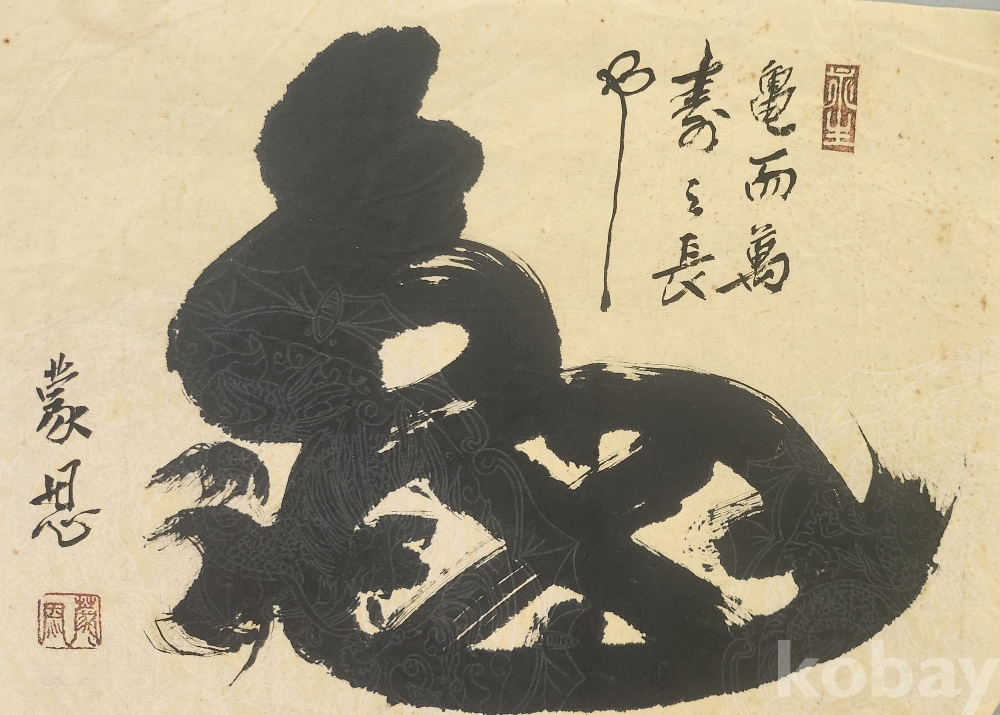 永生
亀而萬
壽之長
蒙恩
蒙恩
kobay